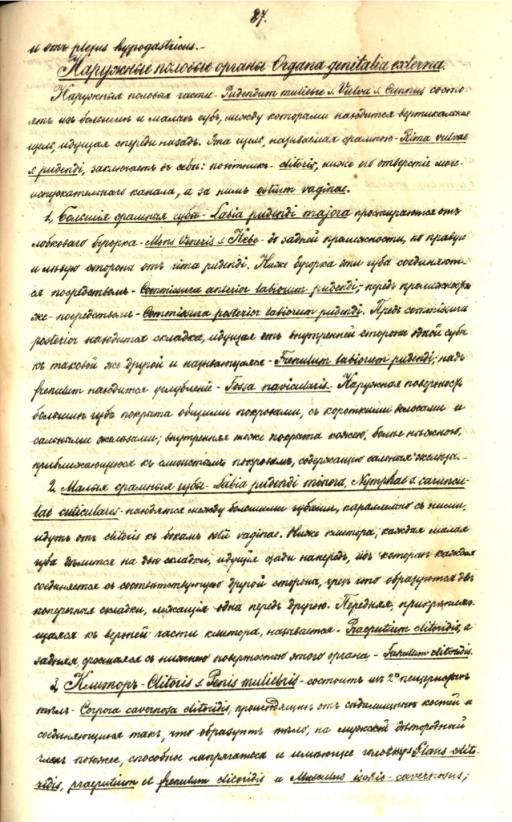 87.
и отъ plexus hypogastricus.-
Наружные половые органы Organa genitalia externa.
Наружныя половыя части - Pudendum muliebre s. Vulva s. Cunnus состо-
ятъ изъ большихъ и малыхъ губъ, между которыми находится вертикальная
щель, идущая спереди назадъ. Эта щель, называемая срамною - Rima vulvae
s. pudendi, заключаетъ въ себѣ: похотникъ - clitoris, ниже его отверстіе моче-
испускательнаго канала, а за нимъ ostium vaginae.
1, Большія срамныя губы - Labia pudendi majora простираются отъ
лобковаго бугорка - Mons Veneris s. Hebe - до задней промежности, по правую
и лѣвую стороны отъ rima pudendi. Ниже бугорка эти губы соединяют-
ся посредствомъ - Commissura anterior labiorum pudendi, передъ промежностью
же посредствомъ - Commissura posterior labiorum pudendi. Предъ commissura
posterior находится складка, идущая отъ внутренней стороны одной губы
къ таковой же другой и называющаяся - Frenulum labiorum pudendi; надъ
frenulum находится углубленіе - Fossa navicularis. Наружная поверхность
большихъ губъ покрыта общими покровами, съ короткими волосами и
сальными железами; внутренняя тоже покрыта кожею, болѣе нѣжною,
приближающеюся къ слизистымъ покровамъ, содержащею сальныя железы.-
2, Малыя срамныя губы - Labia pudendi minora, Nymphae s. caruncu-
lae cuticulares находятся между большими губами, параллельно съ ними,
идутъ отъ clitoris къ бокамъ ostii vaginae. Ниже клитора, каждая малая
губа дѣлится на двѣ складки, идущія сзади напередъ, изъ которыхъ каждая
соединяется съ соответствующею другой стороны, чрезъ что образуются двѣ
поперечныя складки, лежащія одна передъ другою. Передняя, прикрѣпляю-
щаяся къ верхней части клитора, называется - Praeputium clitoridis, а
задняя, сросшаяся съ нижнею поверхностью этого органа - Frenulum clitoridis.
3, Клиторъ - Clitoris s. Penis muliebris - состоитъ изъ 2хъ пещеристыхъ
тѣлъ - Corpora cavernosa clitoridis, происходящихъ отъ сѣдалищныхъ костей и
соединяющихся такъ, что образуютъ тѣло, на мужской дѣтородный
членъ похожее, способное напрягаться и имѣющее головку Glans clito-
ridis, praeputium et frenulum clitoridis и Musculus ischio-cavernosus;